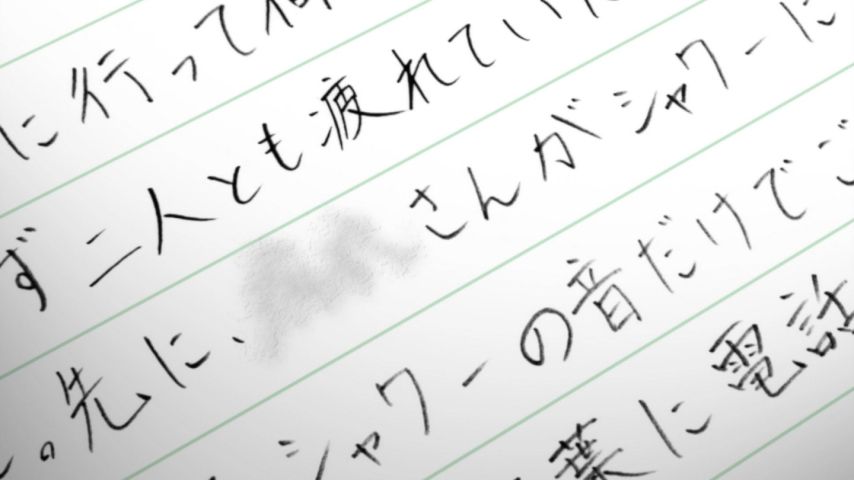 に行って
ず二人とも疲れてい
。先に、さんがシャワーに
シャワーの音だけでご
葉に電話